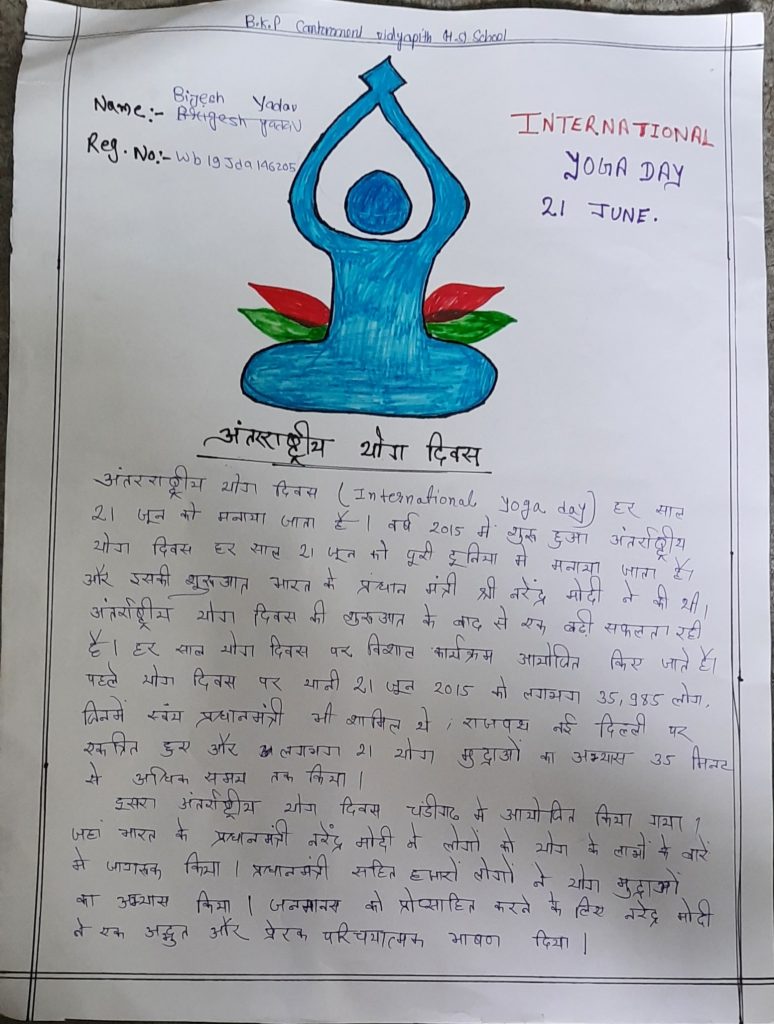 B.K.P Cantonment vidyapith (H.S) School
Name:- Bijesh Yadav
Reg. No:- Wb19Jda146205
INTERNATIONAL
YOGA DAY
21 JUNE.
अंतरराष्ट्रीय योग दिवस
अंतरराष्ट्रीय योग दिवस (International yoga day) हर साल
21 जून को मनाया जाता है। वर्ष 2015 में शुरू हुआ अंतर्राष्ट्रीय
योग दिवस हर साल 21 जून को पूरी दूनिया मे मनाया जाता है।
और इसकी शुरूआत भारत के प्रधान मंत्री श्री नरेंद्र मोदी ने की थी।
अंतर्राष्ट्रीय योग दिवस की शुरुआत के बाद से एक बड़ी सफलता रही
है। हर साल योग दिवस पर विशाल कार्यक्रम आयोजित किए जाते है।
पहले योग दिवस पर यानी 21 जून 2015 को लगभग 35,985 लोग,
जिनमें स्वंय प्रधानमंत्री भी शामिल थे, राजपथ नई दिल्ली पर
एकत्रित हुए और लगभग 21 योग मुद्राओं का अभ्यास 35 मिनट
से अधिक समय तक किया।
दूसरा अंतर्राष्ट्रीय योग दिवस चंडीगढ़ मे आयोजित किया गया,
जहां भारत के प्रधानमंत्री नरेंद्र मोदी ने लोगों को योग के लाभों के बारें
मे जागरूक किया। प्रधानमंत्री सहित हजारों लोगों ने योग मुद्राओं
का अभ्यास किया। जनमानस को प्रोत्साहित करने के लिए नरेंद्र मोदी
ने एक अद्भुत और प्रेरक परिचयात्मक भाषण दिया।